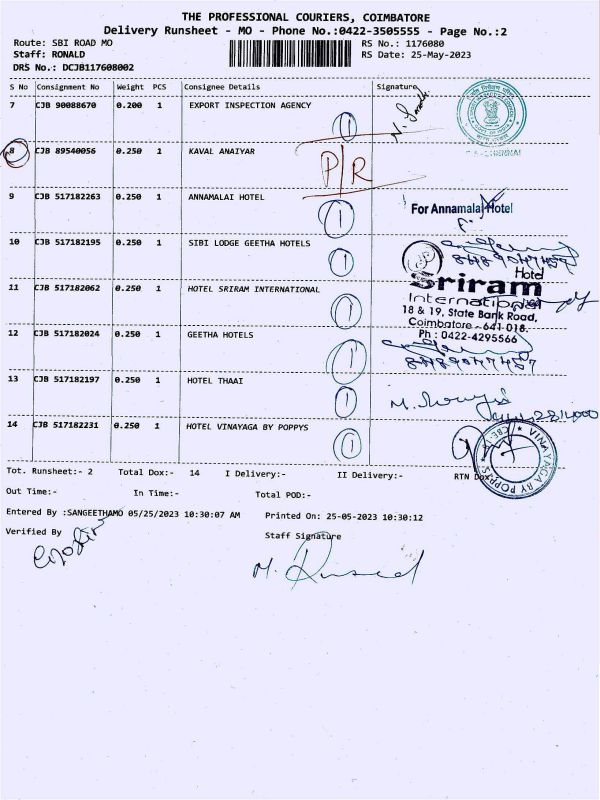 THE PROFESSIONAL COURIERS, COIMBATORE
Delivery Runsheet - MO - Phone No.:0422-3505555 - Page No.:2
Route: SBI ROAD MO RS No.: 1176080
Staff: RONALD RS Date: 25-May-2023
DRS No.: DCJB117608002
S No Consignment No Weight PCS Consignee Details Signature
7 CJB 90088670 0.200 1 EXPORT INSPECTION AGENCY 1
8 CJB 89540056 0.250 1 KAVAL ANAIYAR P/R
9 CJB 517182263 0.250 1 ANNAMALAI HOTEL 1 For Annamalai Hotel
10 CJB 517182195 0.250 1 SIBI LODGE GEETHA HOTELS 1
Hotel
Sriram
11 CJB 517182062 0.250 1 HOTEL SRIRAM INTERNATIONAL 1 International
18 & 19, State Bank Road,
Coimbatore - 641 018.
Ph : 0422-4295566
12 CJB 517182024 0.250 1 GEETHA HOTELS 1
13 CJB 517182197 0.250 1 HOTEL THAAI 1
14 CJB 517182231 0.250 1 HOTEL VINAYAGA BY POPPYS 1
VINAYAGA BY POPPYS
Tot. Runsheet:- 2 Total Dox:- 14 I Delivery:- II Delivery:- RTN Dox
Out Time:- In Time:- Total POD:-
Entered By :SANGEETHAMO 05/25/2023 10:30:07 AM Printed On: 25-05-2023 10:30:12
Verified By Staff Signature